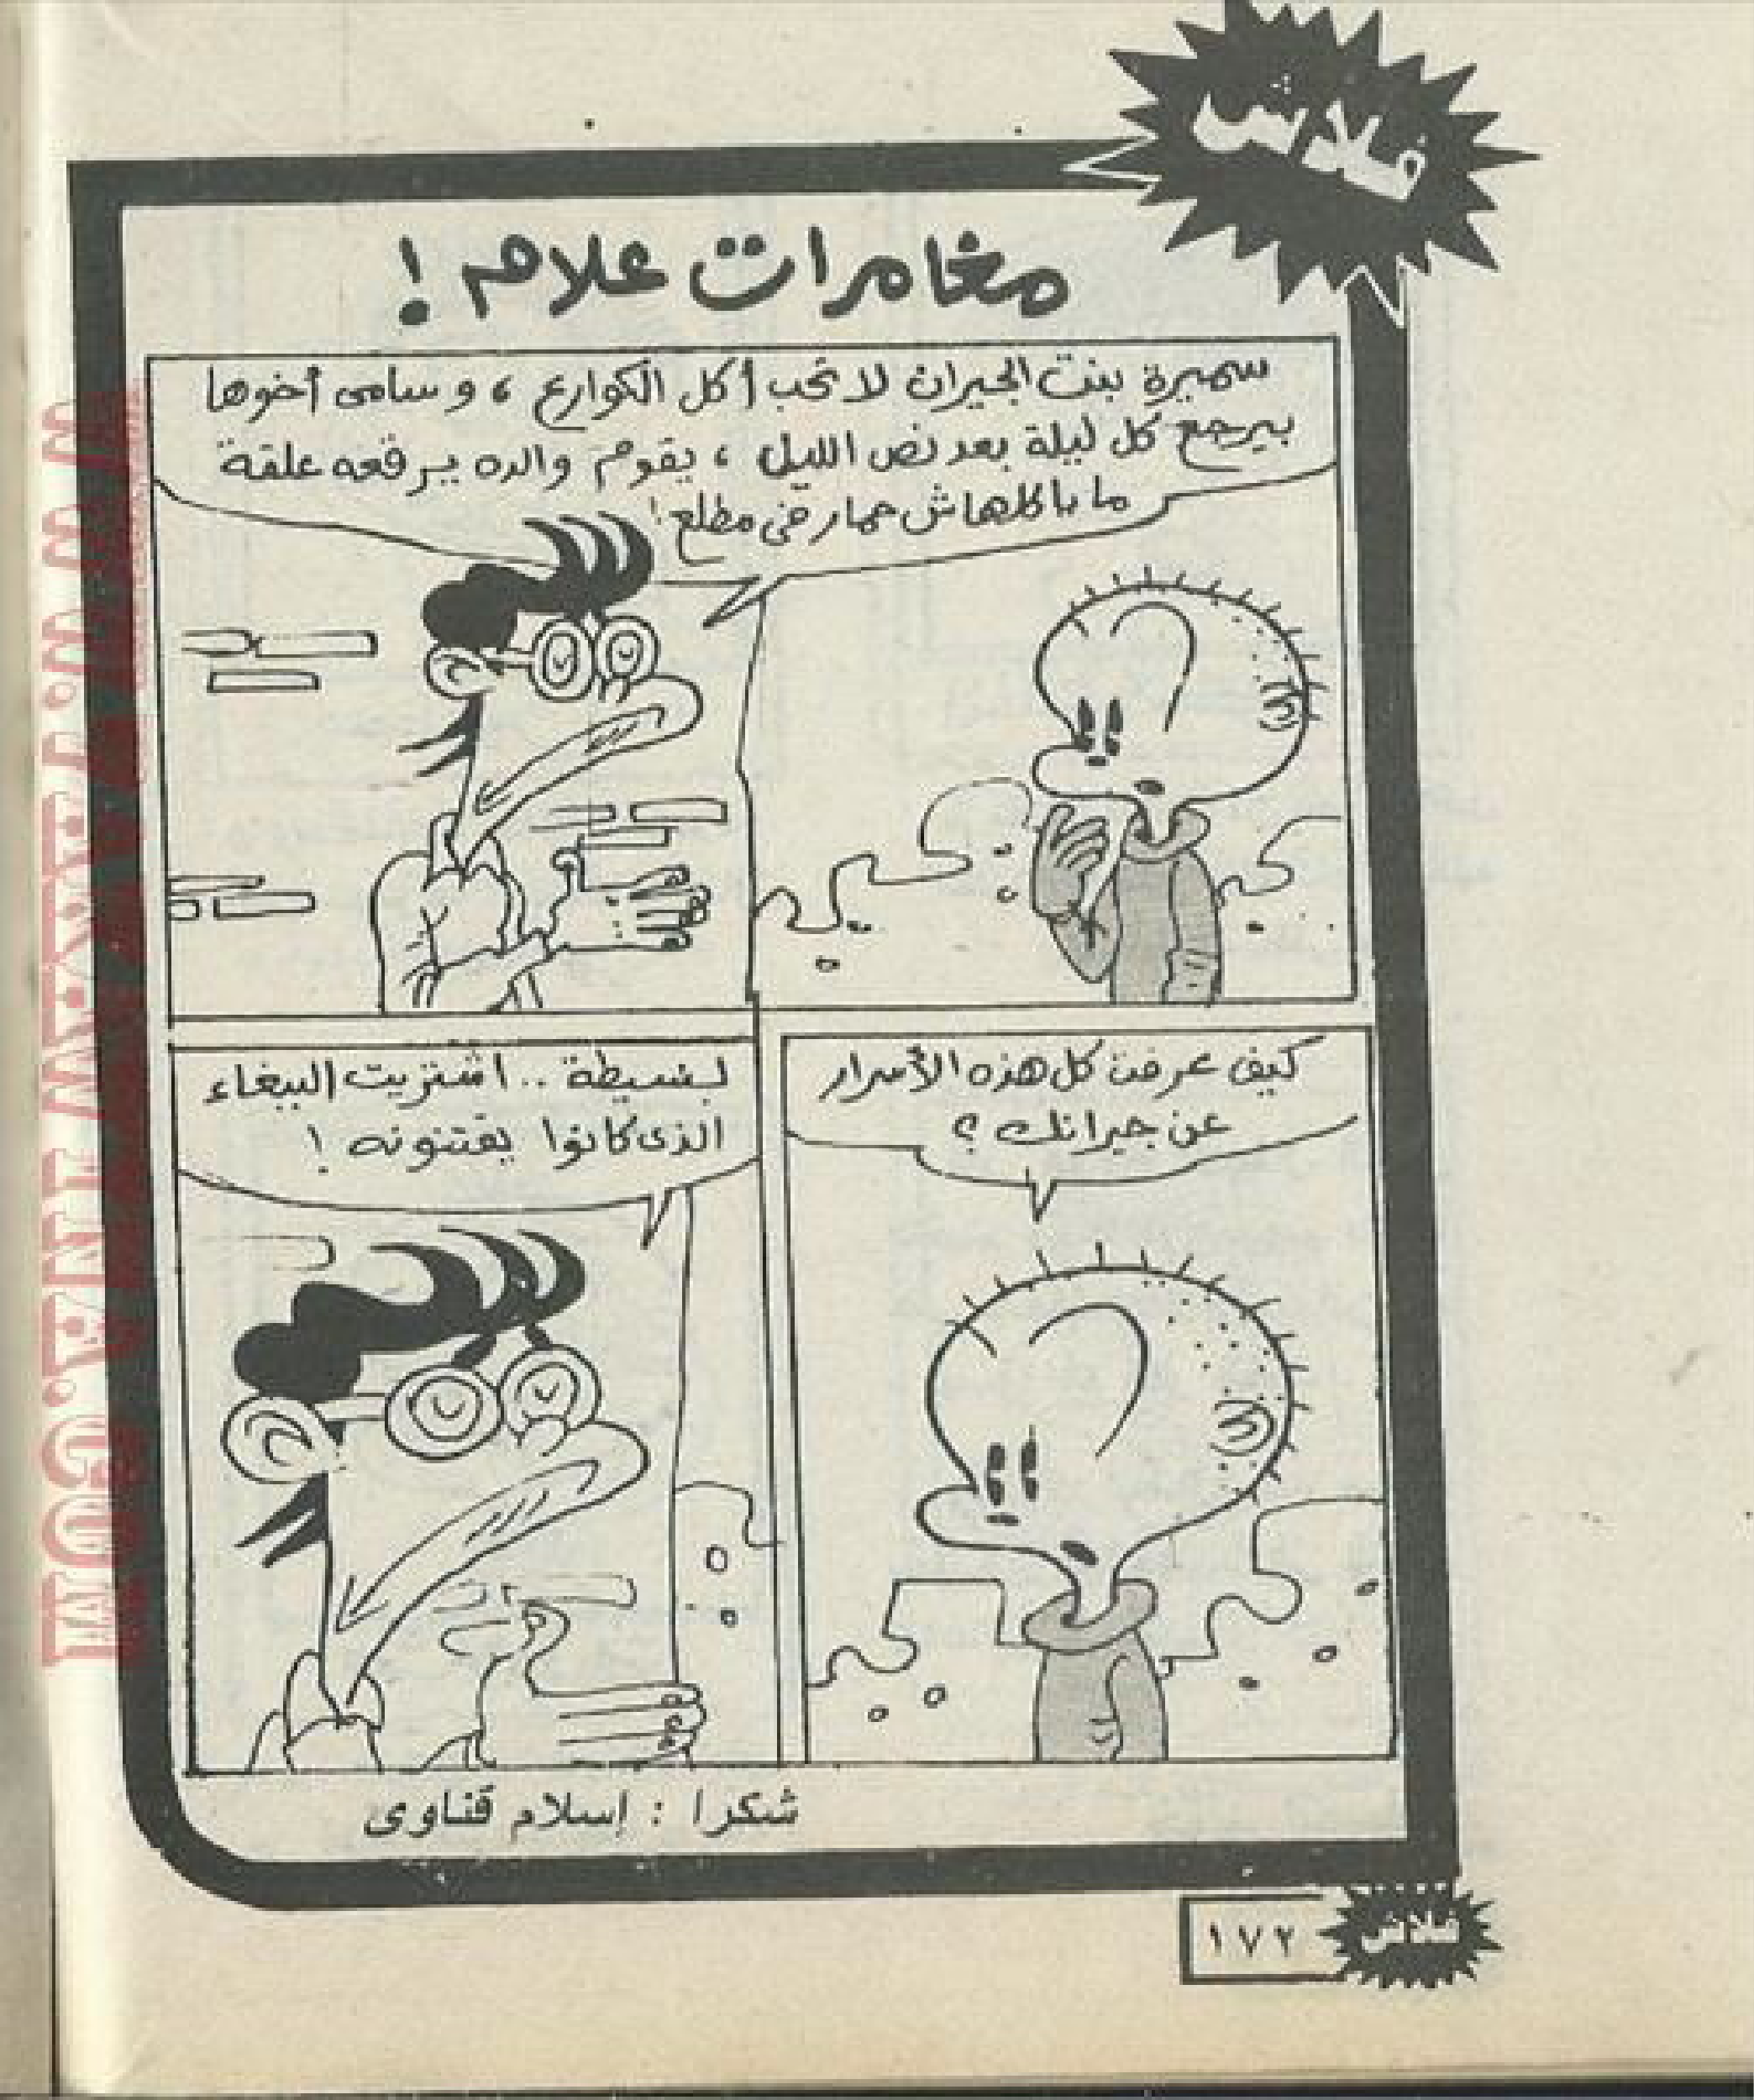 فلاش
مغامرات علام !
سميرة بنت الجيران لا تحب أكل الكوارع ، و سامى أخوها
بيرجع كل ليلة بعد نص الليل ، يقوم والده يرقعه علقة
ما ياكلهاش حمار فى مطلع !
كيف عرفت كل هذه الأسرار
عن جيرانك ؟
بسيطة .. اشتريت الببغاء
الذى كانوا يقتنونه !
شكرا : إسلام قناوى
١٧٢
فلاش